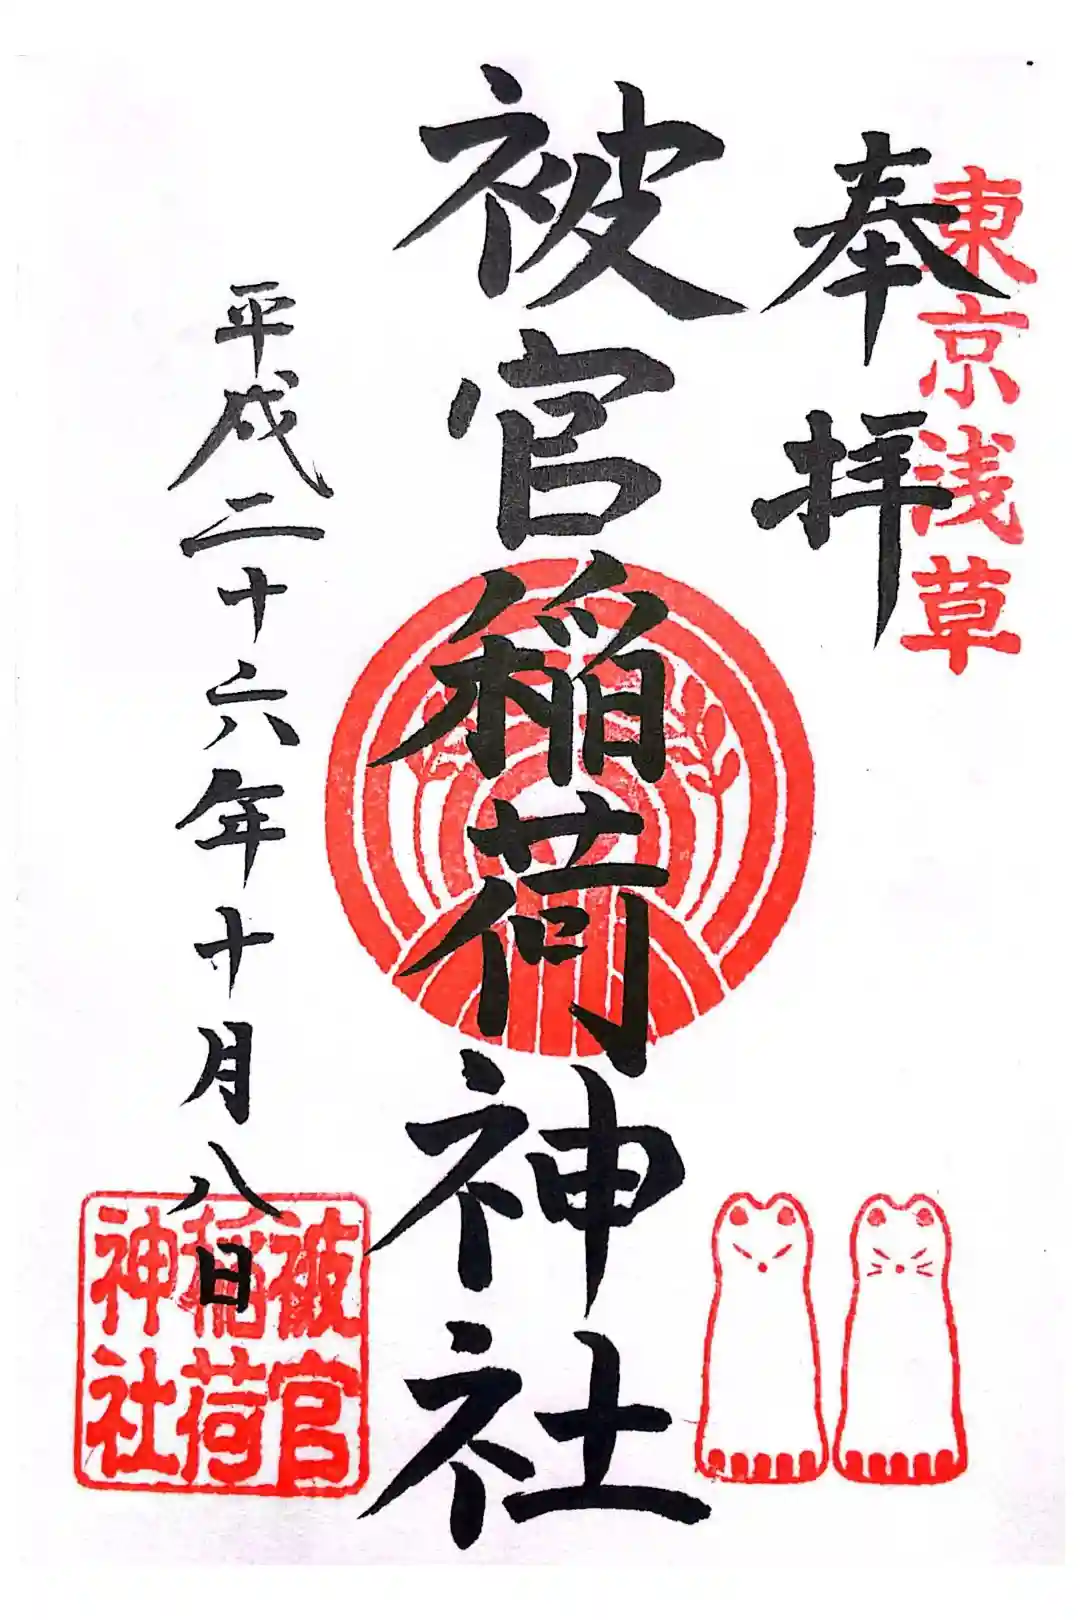 東京浅草
奉拝
被官稲荷神社
平成二十六年十月八日
被官
稲荷
神社